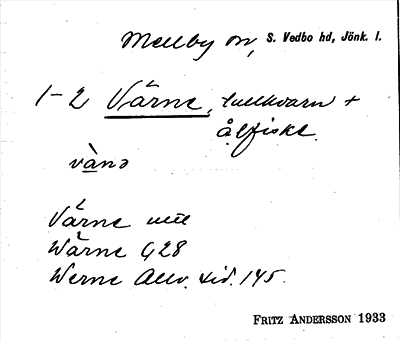 Mellby sn, S. Vedbo hd, Jönk. l.
1-2 Värne, tullkvarn +
ålfiske.
vànə
Värne
Wärne G28
Werne Allv. sid. 145.
FRITZ ANDERSSON 1933